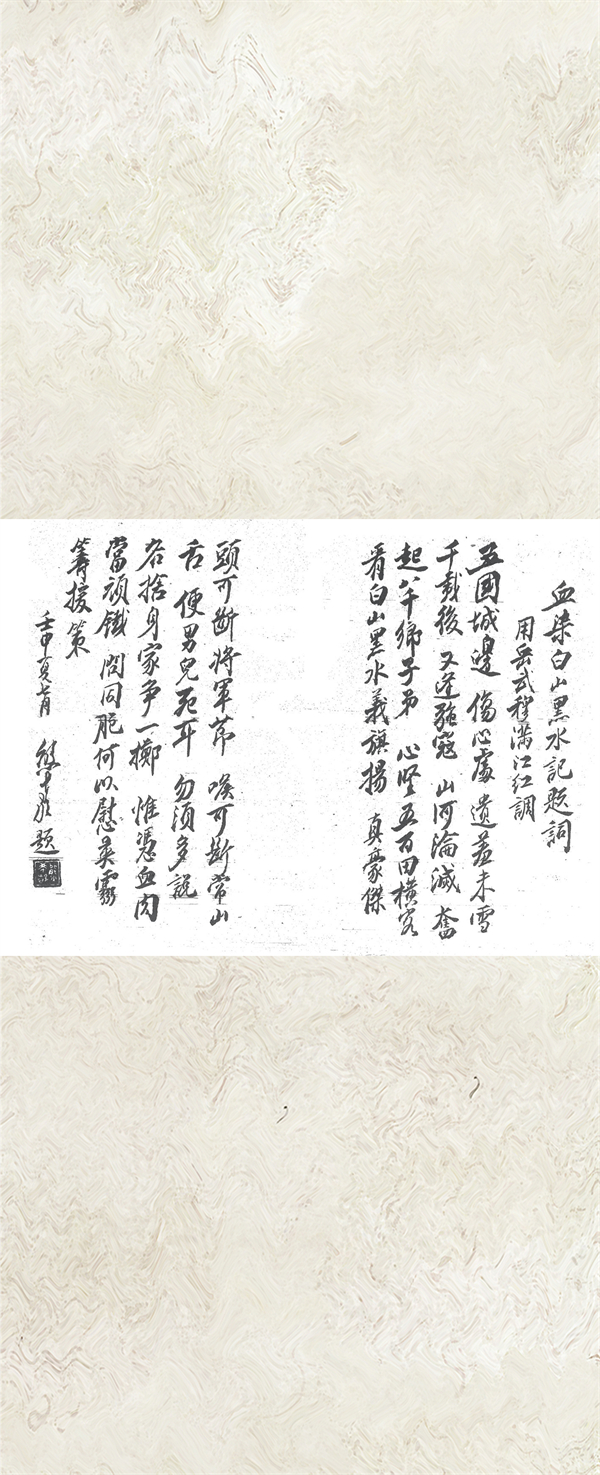 血染白山黑水記題詞
用岳武穆滿江紅調
五國城邊 傷心處 遺羞未雪
千載後 又逢強寇 山河淪滅 奮
起八千鄉子弟 心堅五百田橫客
看白山黑水義旗揚 真豪傑
頭可斷將軍節 喉可斷常山
舌 便男兒死耳 勿須多說
各捨身家爭一擲 惟憑血肉
當頑鐵 問同胞何以慰英靈
籌援策
壬申夏 題